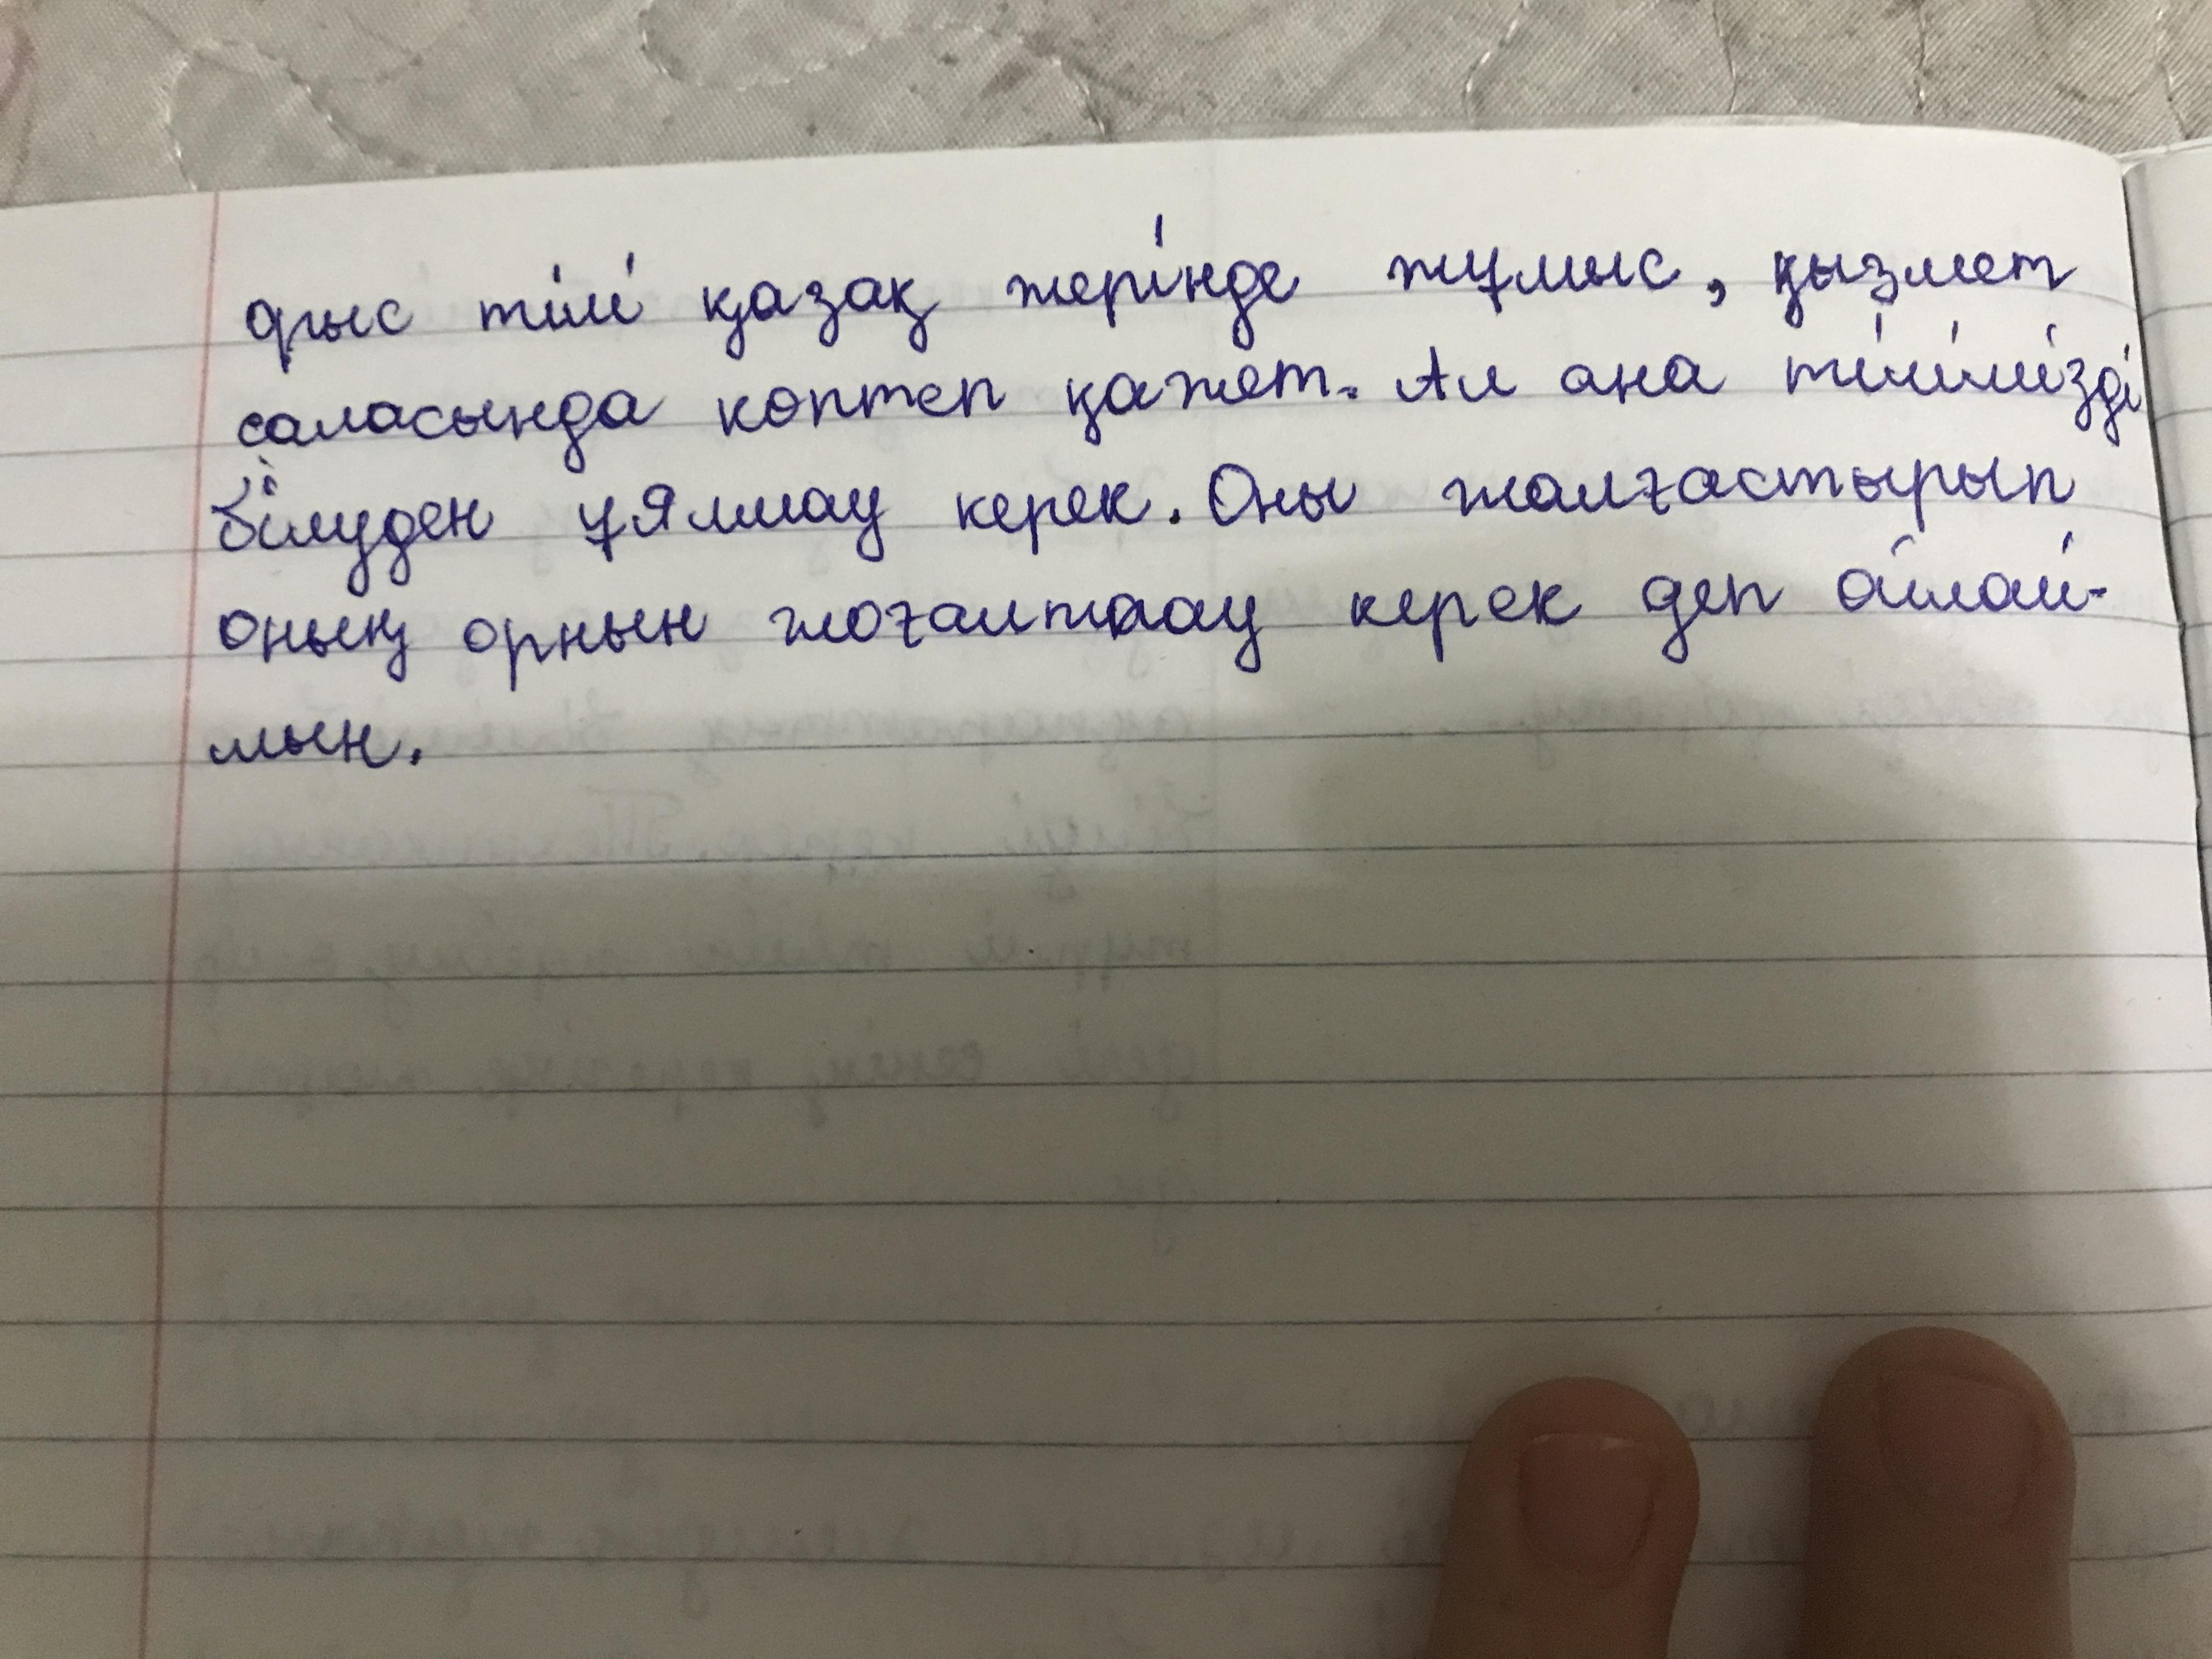 орыс тілі қазақ жерінде жұмыс, қызмет
саласында көптеп қажет. Ал ана тілімізді
білуден ұялмау керек. Оны жалғастырып
оның орнын жоғалтпау керек деп ойлай-
мын.